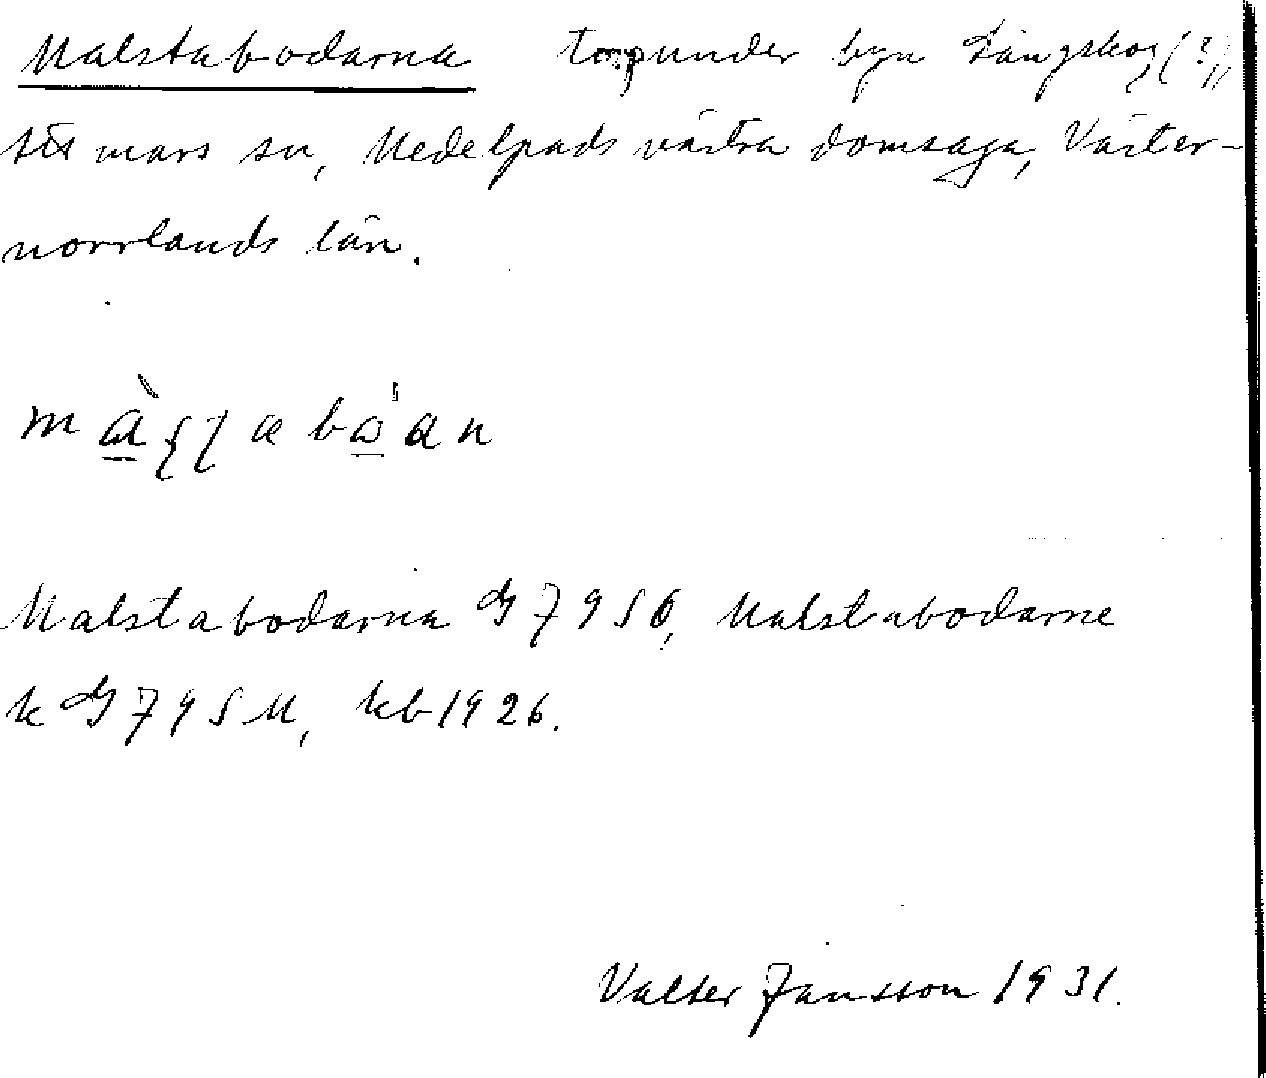 Malstabodarna torp under byn Långskog (?),
Stt mars sn, Medelpads västra domsaga, Väster-
norrlands län.
Malstabodarna GJ 7956, Malstabodarne
k GJ 795 M, kb 1926.
Valter Jansson 1931.